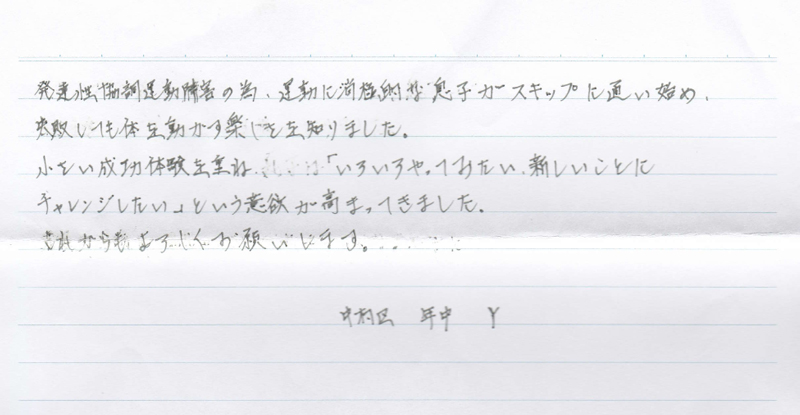 発達性協調運動障害の為、運動に消極的な息子がスキップに通い始め、
失敗しても体を動かす楽しさを知りました。
小さい成功体験を重ね、「いろいろやっておたい、新しいことに
チャレンジしたい」という意欲が高まってきました。
これからもよろしくお願いします。
中村区 年中 Y